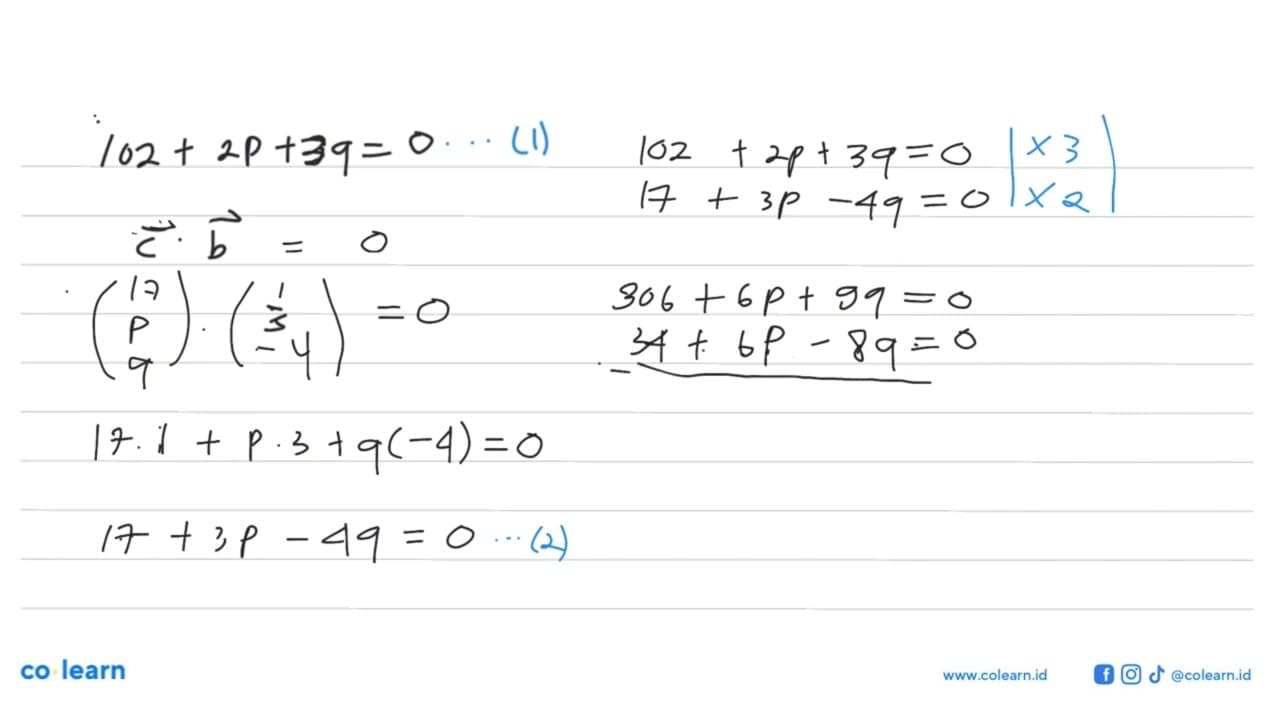 102 + 2p + 3q = 0 ... (1)
c⃗ . b⃗ = 0
(17 p q) . (1 3 -4) = 0
17.1 + p.3 + q(-4) = 0
17 + 3p - 4q = 0 ... (2)
102 + 2p + 3q = 0 | x 3 |
17 + 3p - 4q = 0 | x 2 |
306 + 6p + 9q = 0
34 + 6p - 8q = 0
-
co learn
www.colearn.id
@colearn.id